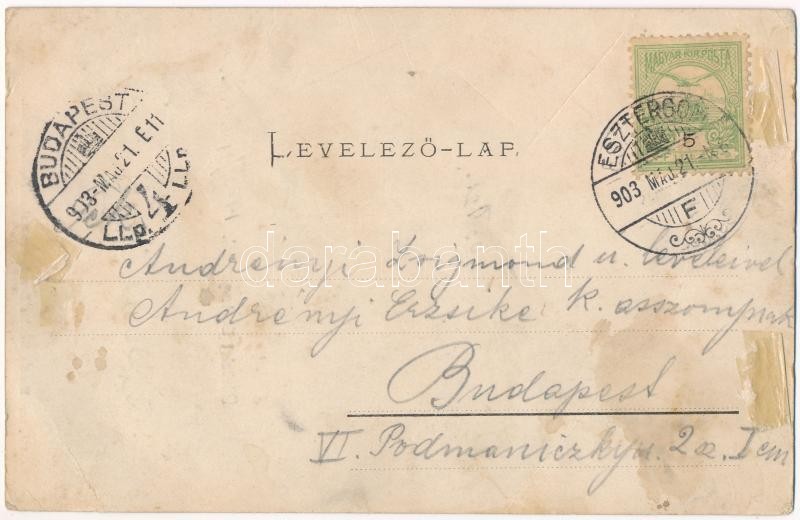 MAGYAR KIR. POSTA
ESZTERGOM
5
903 MÁJ. 21
F
BUDAPEST
903-MÁJ. 21. E11
4
LEVELEZŐ-LAP.
darabanth
Andrényi Zsigmond u. leveleivel
Andrényi Erzsike k. asszonynak
Budapest
VI. Podmaniczky u. 2 sz. I em